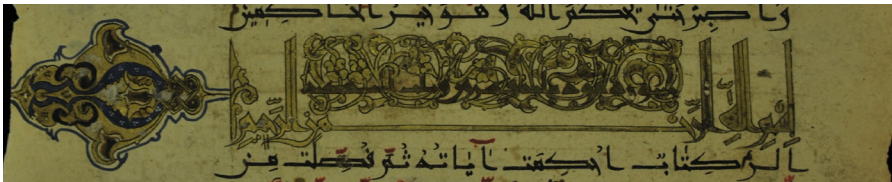 وَاصْبِرْ حَتَّىٰ يَحْكُمَ اللَّهُ وَهُوَ خَيْرُ الْحَاكِمِينَ
بسم الله الرحمن الرحيم
الر كِتَابٌ أُحْكِمَتْ آيَاتُهُ ثُمَّ فُصِّلَتْ مِنْ